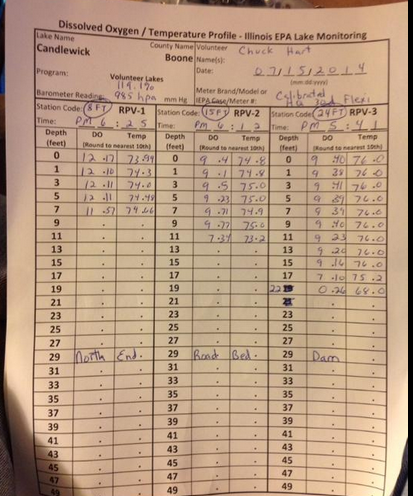 Dissolved Oxygen / Temperature Profile - Illinois EPA Lake Monitoring
Lake Name County Name Volunteer Chuck Hart
Candlewick Boone Name(s):
Date: 07/15/2014
(mm/dd/yyyy)
Program: Volunteer Lakes
Meter Brand/Model or Calibrated
Barometer Reading: 985 hpa mm Hg IEPA Case/Meter #:
Station Code: 8 FT RPV-1 Station Code: 15 FT RPV-2 Station Code: 24 FT RPV-3
Time: PM 6:25 Time: PM 6:12 Time: PM 5:41
Depth DO Temp Depth DO Temp Depth DO Temp
(feet) (Round to nearest 10th) (feet) (Round to nearest 10th) (feet) (Round to nearest 10th)
0 12.17 73.99 0 9.4 74.8 0 9.40 76.0
1 12.10 74.3 1 9.1 74.8 1 9.38 76.0
3 12.11 74.0 3 9.5 75.0 3 9.41 76.0
5 12.11 74.48 5 9.23 75.0 5 9.39 76.0
7 11.57 74.66 7 9.71 74.9 7 9.39 76.0
9 . . 9 9.77 75.0 9 9.40 76.0
11 . . 11 7.34 73.2 11 9.23 76.0
13 . . 13 . . 13 9.20 76.0
15 . . 15 . . 15 9.16 76.0
17 . . 17 . . 17 7.10 75.2
19 . . 19 . . 22 0.26 68.0
21 . . 21 . . . .
23 . . 23 . . 23 . .
25 . . 25 . . 25 . .
27 . . 27 . . 27 . .
29 North End. 29 Road Bed. 29 Dam .
31 . . 31 . . 31 . .
33 . . 33 . . 33 . .
35 . . 35 . . 35 . .
37 . . 37 . . 37 . .
39 . . 39 . . 39 . .
41 . . 41 . . 41 . .
43 . . 43 . . 43 . .
45 . . 45 . . 45 . .
47 . . 47 . . 47 . .
49 . . 49 . . 49 . .